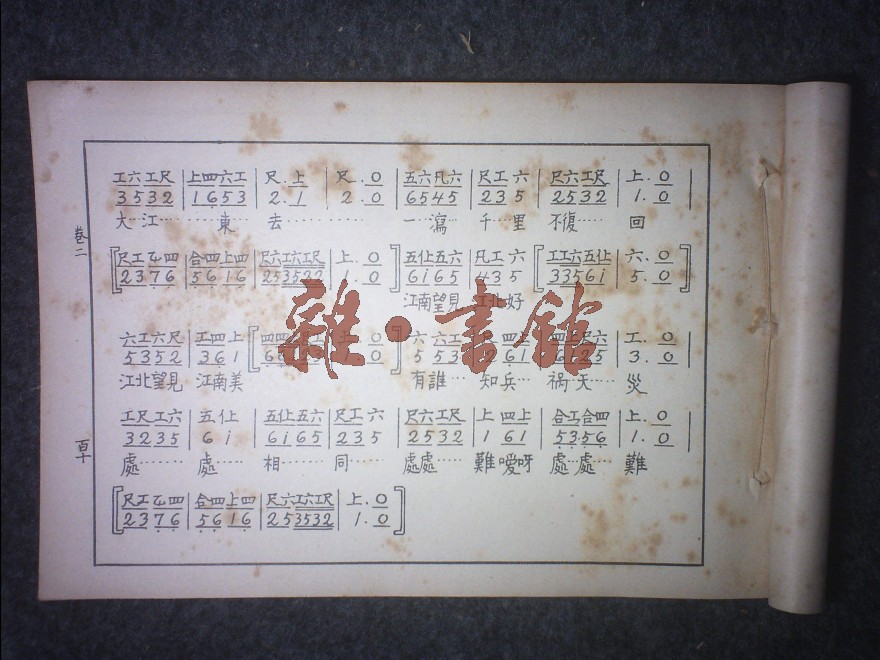 工六工尺 上四六工 尺.上 尺.0 五六凡六 尺工六 尺六工尺 上.0
3532 1653 2.1 2.0 6545 235 2532 1.0
大…江……東 去………… 一…瀉… 千…里 不復……回
卷二
[尺工乙四 合四上四 尺六工六工尺 上.0] 五仩五六 凡工六 [工工六五仩 六.0]
[2376 5616 253532 1.0] 6i65 435 [3356i 5.0]
江南望見 江北好
六工六尺 工四上
5352 361 0] 5 53 61 25 3.0
江北望見 江南美 有誰… 知兵… 禍…天… 災
雜·書館
工尺工六 五仩 五仩五六 尺工六 尺六工尺 上四上 合工合四 上.0
3235 6i 6i65 235 2532 161 5356 1.0
處…… 處…… 相……同…… 處處…… 難噯呀 處…處… 難
百十
[尺工乙四 合四上四 尺六工六工尺 上.0]
[2376 5616 253532 1.0]